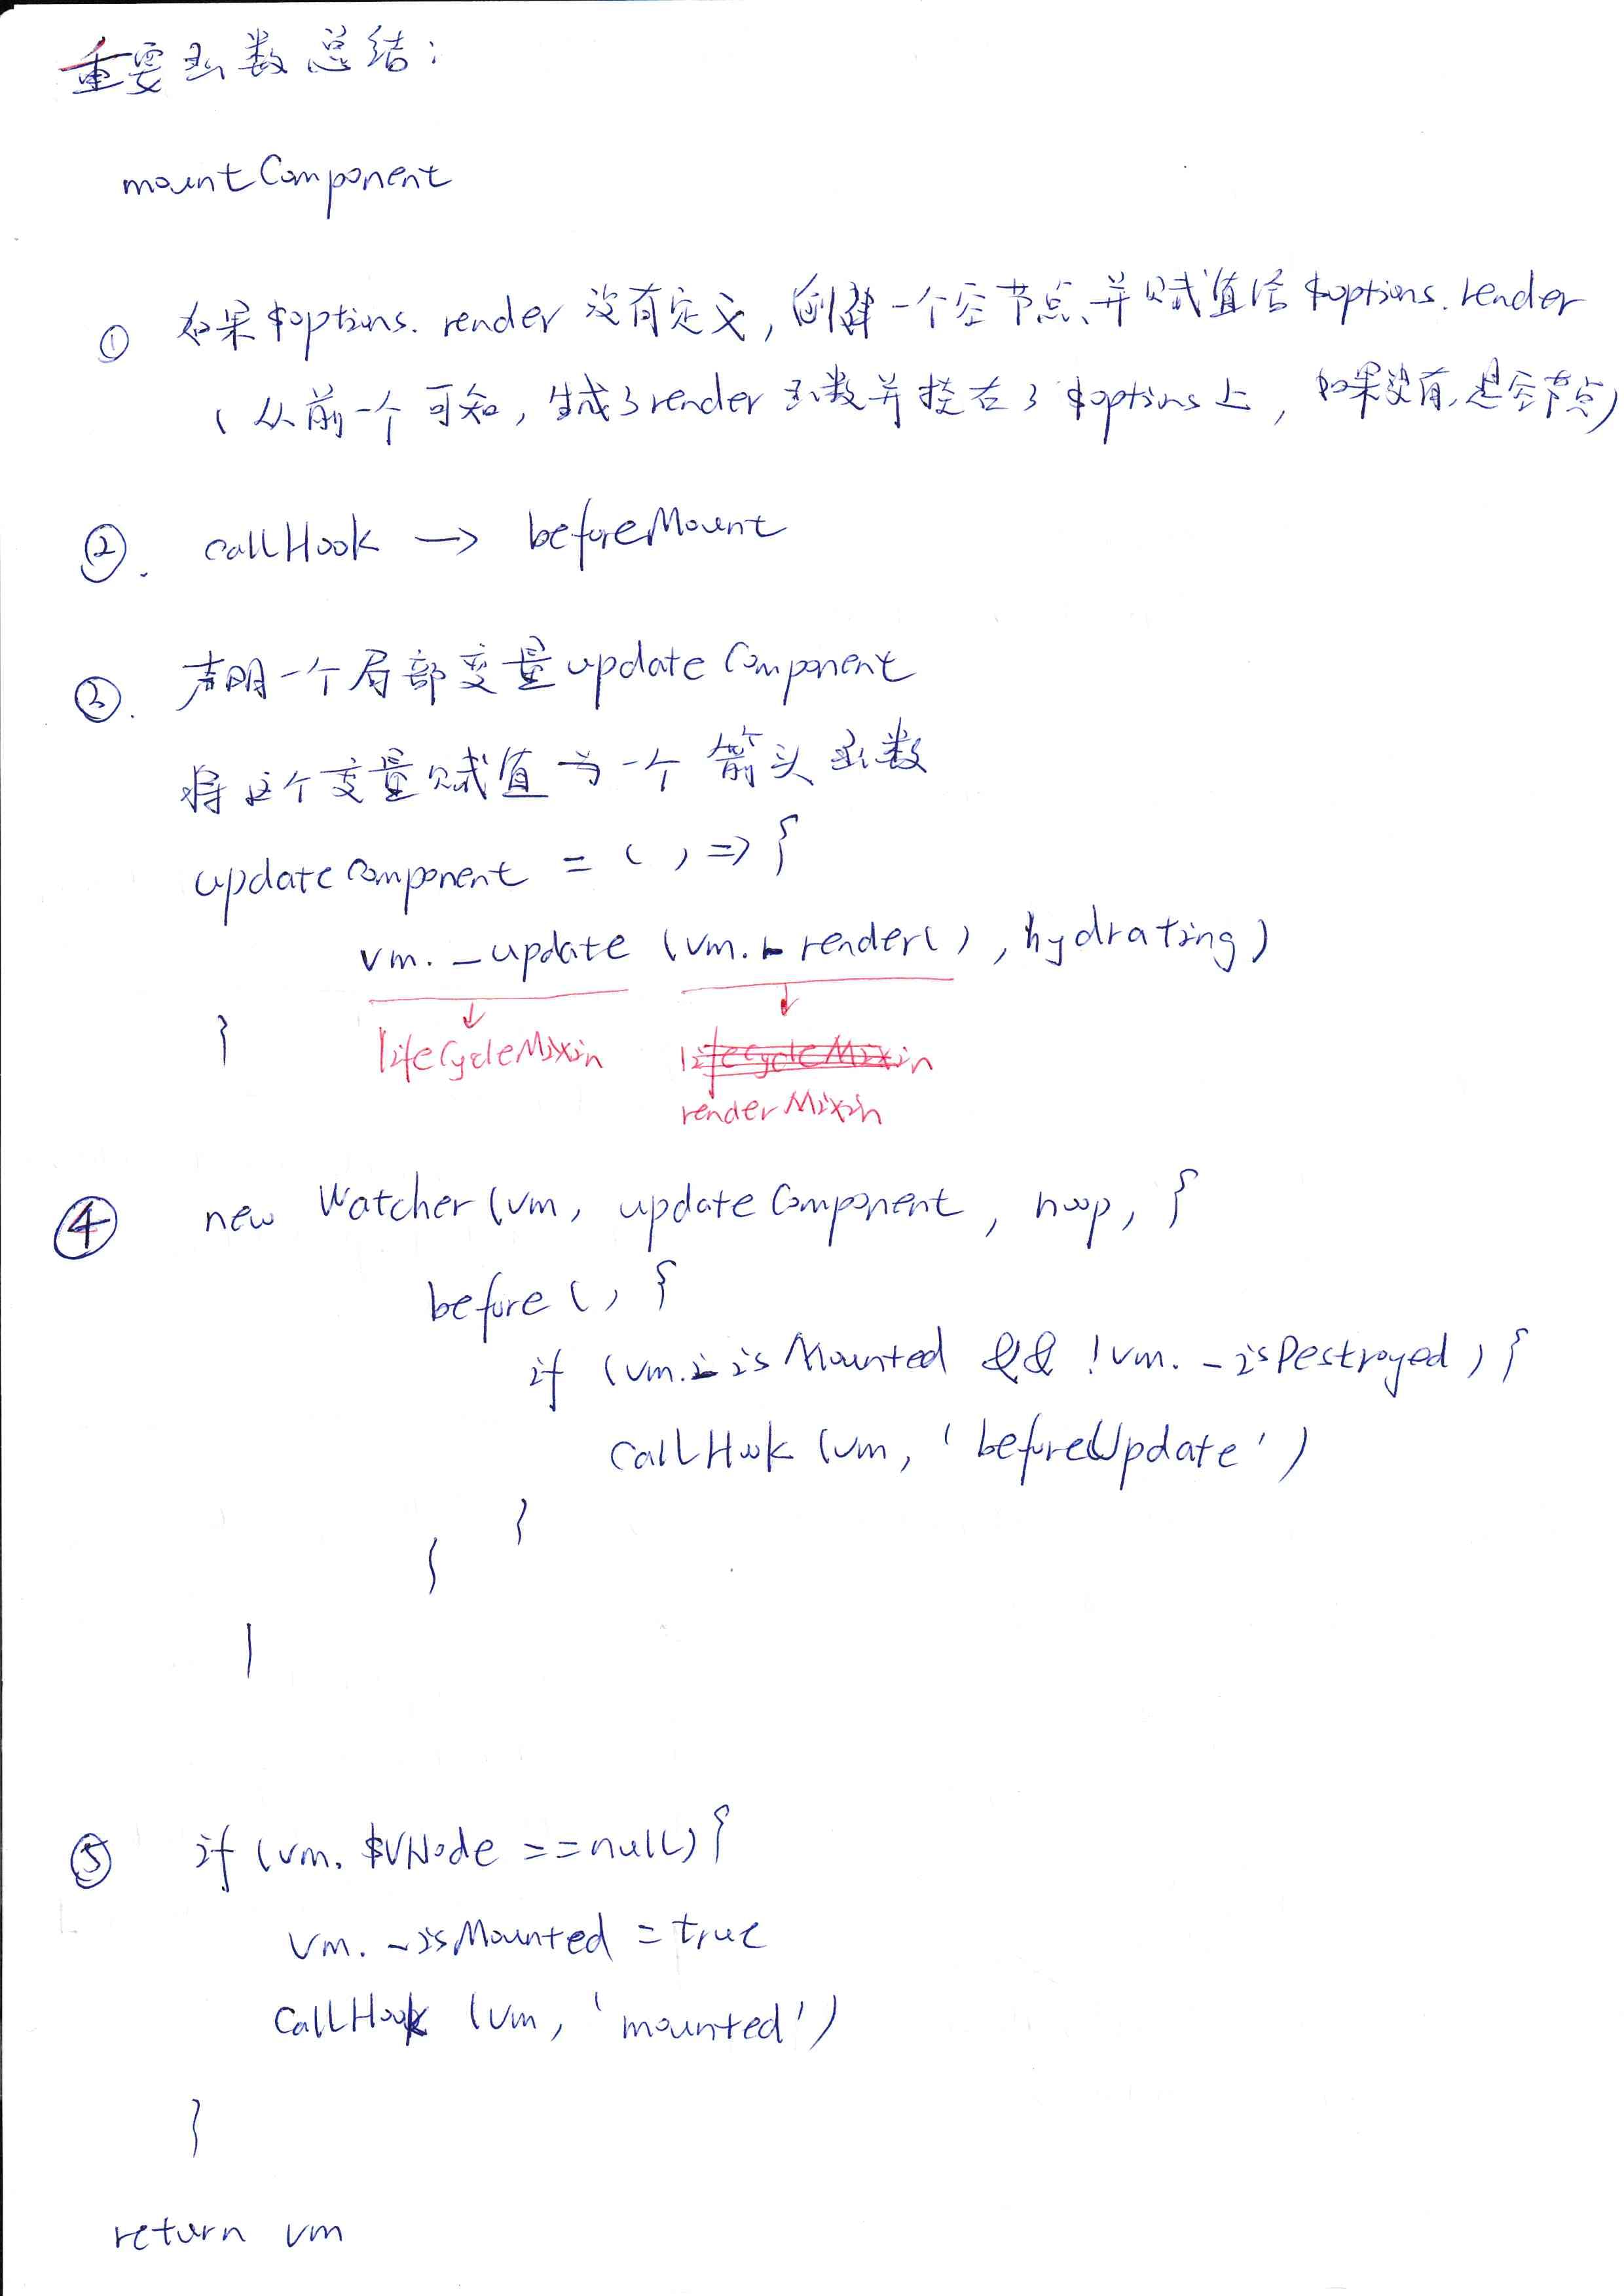 重要函数总结:
mountComponent
① 如果$options.render 没有定义, 创建一个空节点、并赋值给 $options.render
(从前一个可知, 生成了render 函数并挂在了 $options上, 如果没有,是空节点)
②. callHook → beforeMount
③. 声明一个局部变量updateComponent
将这个变量赋值为一个箭头函数
updateComponent = () => {
vm._update (vm._render(), hydrating)
}
lifeCycleMixin lifecycleMixin
renderMixin
④ new Watcher(vm, updateComponent, noop, {
before () {
if (vm._isMounted && !vm._isDestroyed) {
callHook (vm, 'beforeUpdate')
}
}
⑤ if (vm.$VNode ==null) {
vm._isMounted = true
callHook (vm, 'mounted')
}
return vm